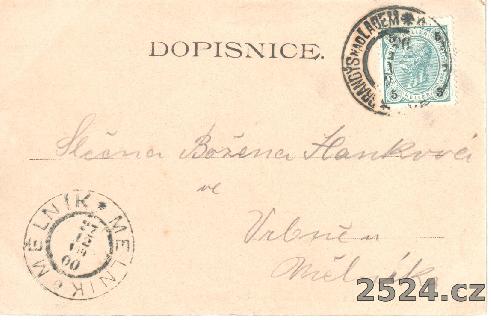 DOPISNICE.
BRANDÝS NAD LABEM *
Slečna Božena Hankova
ve
Vrbně u
Mělníka
MĚLNÍK * MELNIK *
00
2524.cz